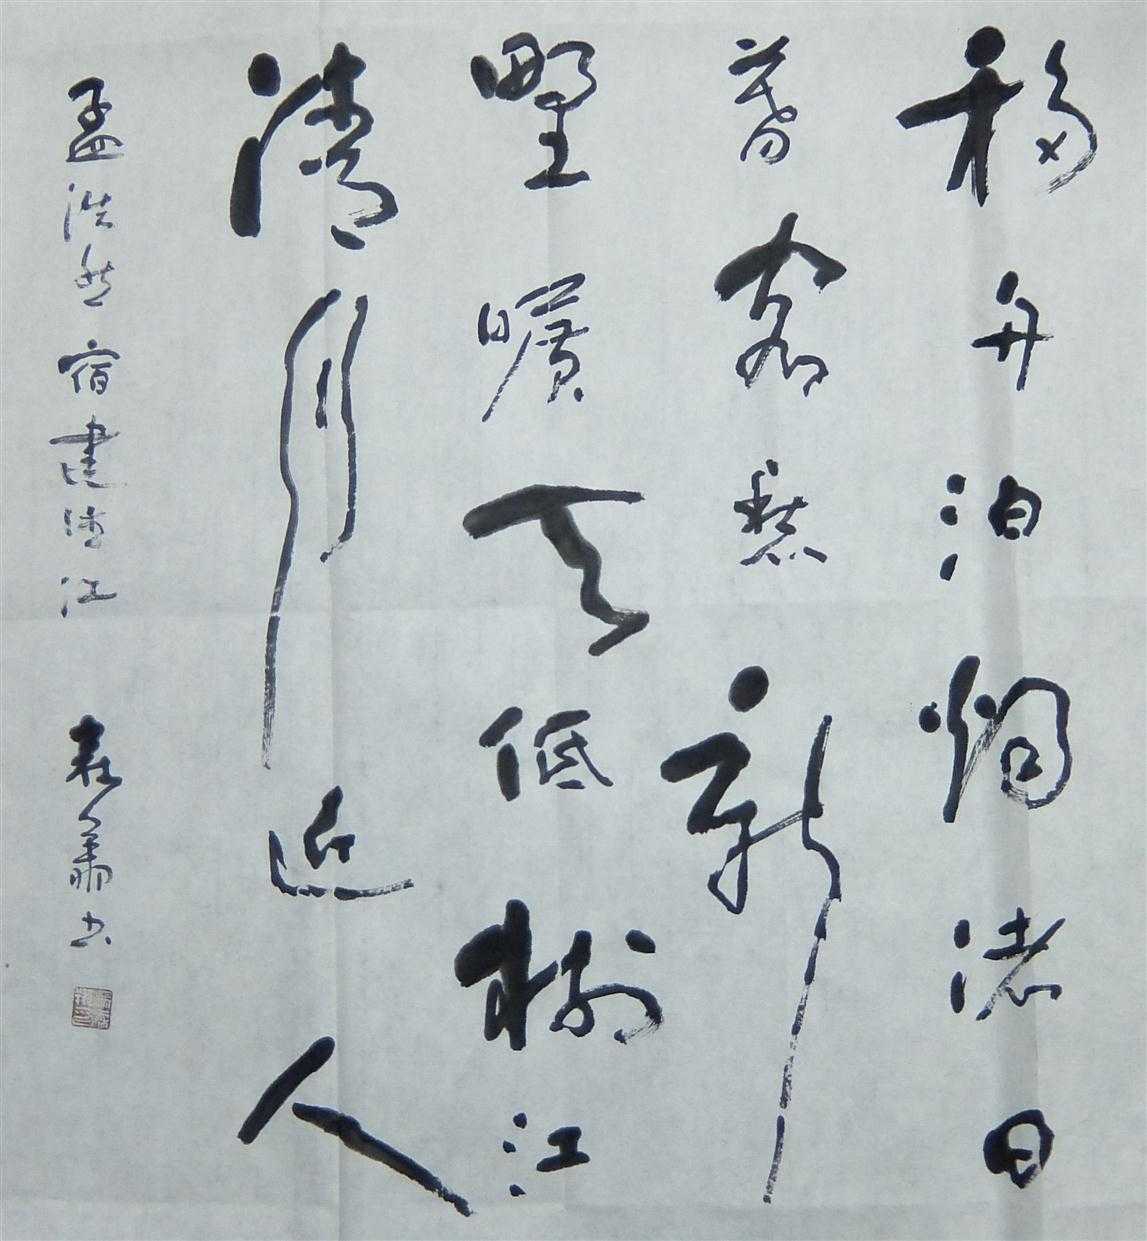 移舟泊烟渚日
暮客愁新
野曠天低樹江
清月近人
孟浩然宿建德江
书